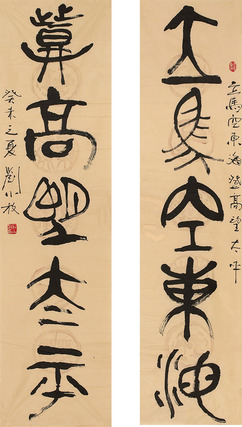 立馬空東海
立馬空東海登高望太平
登高望太平
癸未之夏劉小